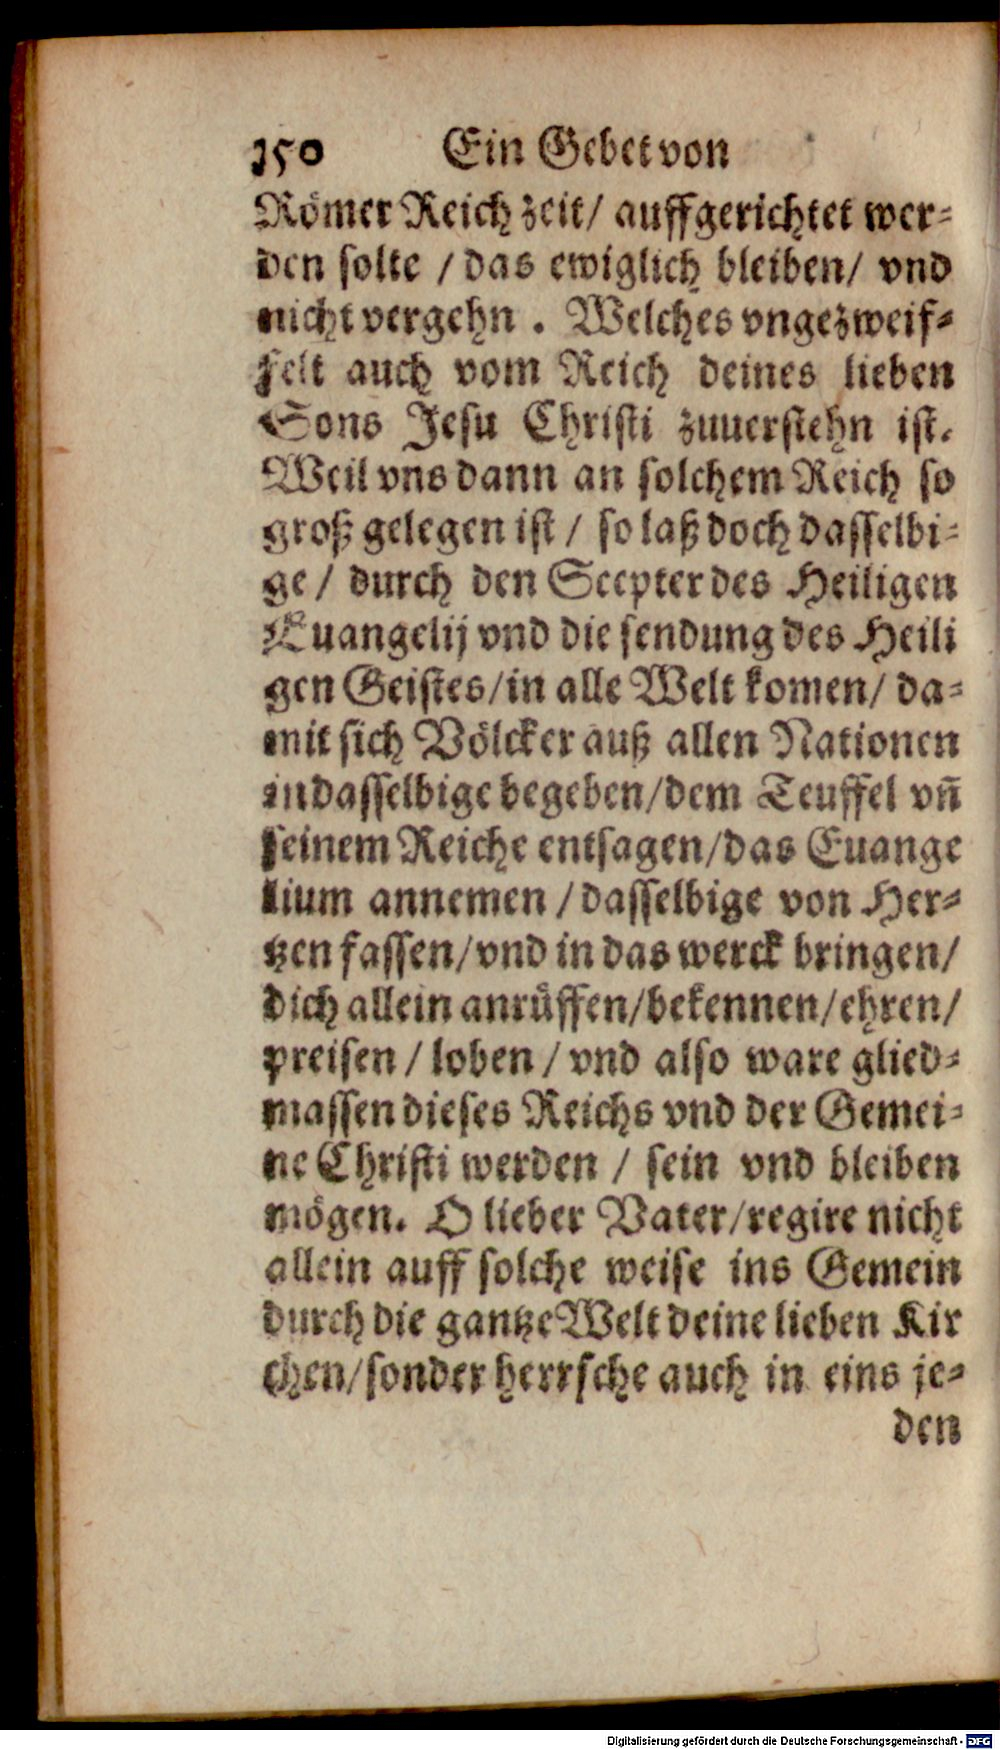 150 Ein Gebet von
Römer Reich zeit/ auffgerichtet wer-
den solte / das ewiglich bleiben/ vnd
nicht vergehn . Welches vngezweif-
felt auch vom Reich deines lieben
Sons Jesu Christi zuuerstehn ist.
Weil vns dann an solchem Reich so
groß gelegen ist / so laß doch dasselbi-
ge / durch den Scepter des Heiligen
Euangelij vnd die sendung des Heili
gen Geistes/in alle Welt komen/ da-
mit sich Völcker auß allen Nationen
in dasselbige begeben/dem Teuffel vn̄
seinem Reiche entsagen/das Euange
lium annemen / dasselbige von Her-
tzen fassen/vnd in das werck bringen/
dich allein anrüffen/bekennen/ehren/
preisen / loben / vnd also ware glied-
massen dieses Reichs vnd der Gemei-
ne Christi werden / sein vnd bleiben
mögen. O lieber Vater/regire nicht
allein auff solche weise ins Gemein
durch die gantze Welt deine lieben Kir
chen/sonder herrsche auch in eins je-
den
Digitalisierung gefördert durch die Deutsche Forschungsgemeinschaft - DFG